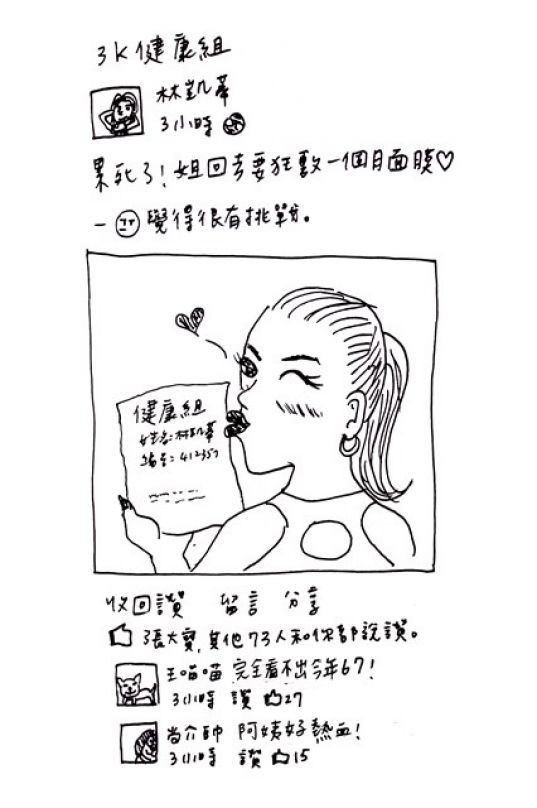 3K健康組
林凱蒂
3小時
累死了!姐回去要狂敷一個月面膜♡
- 覺得很有挑戰。
健康組
姓名:林凱蒂
編號:412357
收回讚 留言 分享
張大寶,其他73人和你都說讚。
王喵喵 完全看不出今年67!
3小時 讚 27
尚介帥 阿姨好熱血!
3小時 讚 15